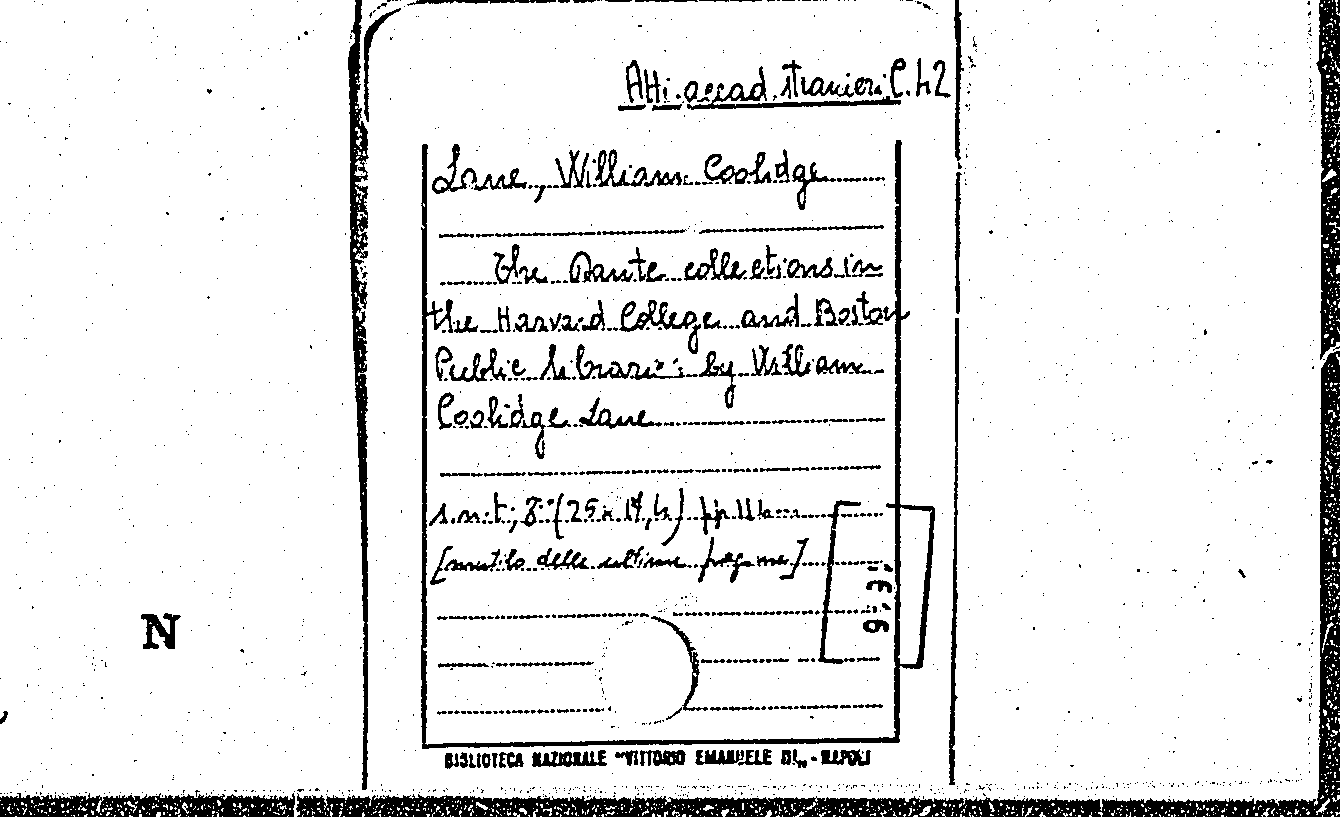 Atti accad. stranieri C. 42
Lane, William Coolidge
The Dante collections in
the Harvard College and Boston
Public libraries by William
Coolidge Lane
s.n.t; 8° (25 x 17,4) pp 116
[mutilo delle ultime pagine]
N
BIBLIOTECA NAZIONALE "VITTORIO EMANUELE III" - NAPOLI